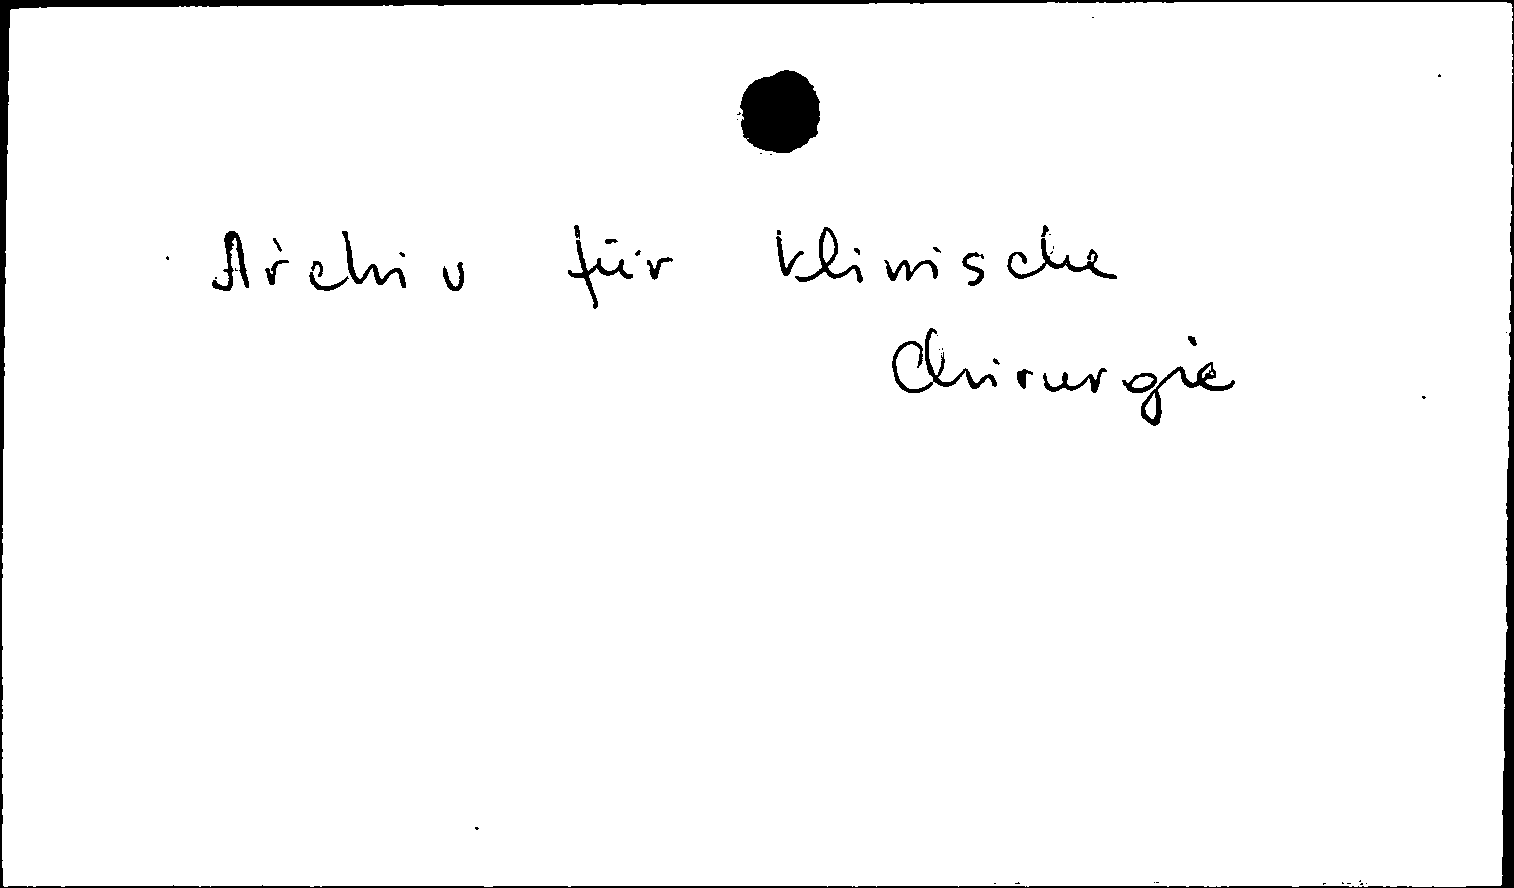 Archiv für klinische
Chirurgie